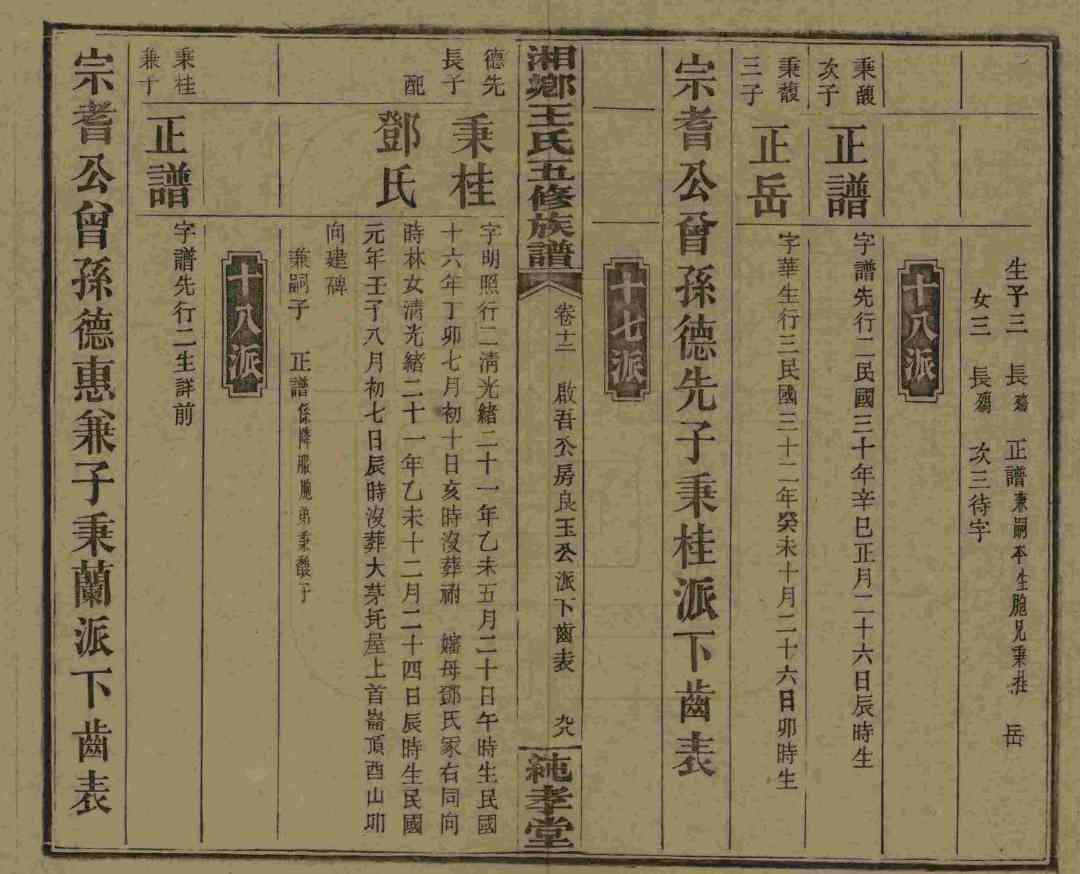 生子三 長殤 正譜兼嗣本生胞兄秉桂 岳
女三 長殤 次三待字
十八派
秉馥次子
正譜
字譜先行二民國三十年辛巳正月二十六日辰時生
秉馥三子
正岳
字華生行三民國三十二年癸未十月二十六日卯時生
宗耆公曾孫德先子秉桂派下齒表
十七派
湘鄉王氏五修族譜
卷十二 啟吾公房良玉公派下齒表 九八
純孝堂
德先長子
秉桂
字明照行二清光緒二十一年乙未五月二十日午時生民國
十六年丁卯七月初十日亥時沒葬祔 嬸母鄧氏冢右同向
配
鄧氏
時林女清光緒二十一年乙未十二月二十四日辰時生民國
元年壬子八月初七日辰時沒葬大茅坉屋上首崙頂酉山卯
向建碑
兼嗣子 正譜係降服胞弟秉馥子
十八派
秉桂兼子
正譜
字譜先行二生詳前
宗耆公曾孫德惠兼子秉蘭派下齒表